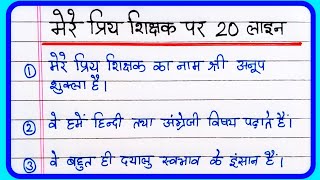 मेरे प्रिय शिक्षक पर 20 लाइन
① मेरे प्रिय शिक्षक का नाम श्री अनूप
शुक्ला है।
② वे हमें हिन्दी तथा अंग्रेजी विषय पढ़ाते हैं।
③ वे बहुत ही दयालु स्वभाव के इंसान हैं।